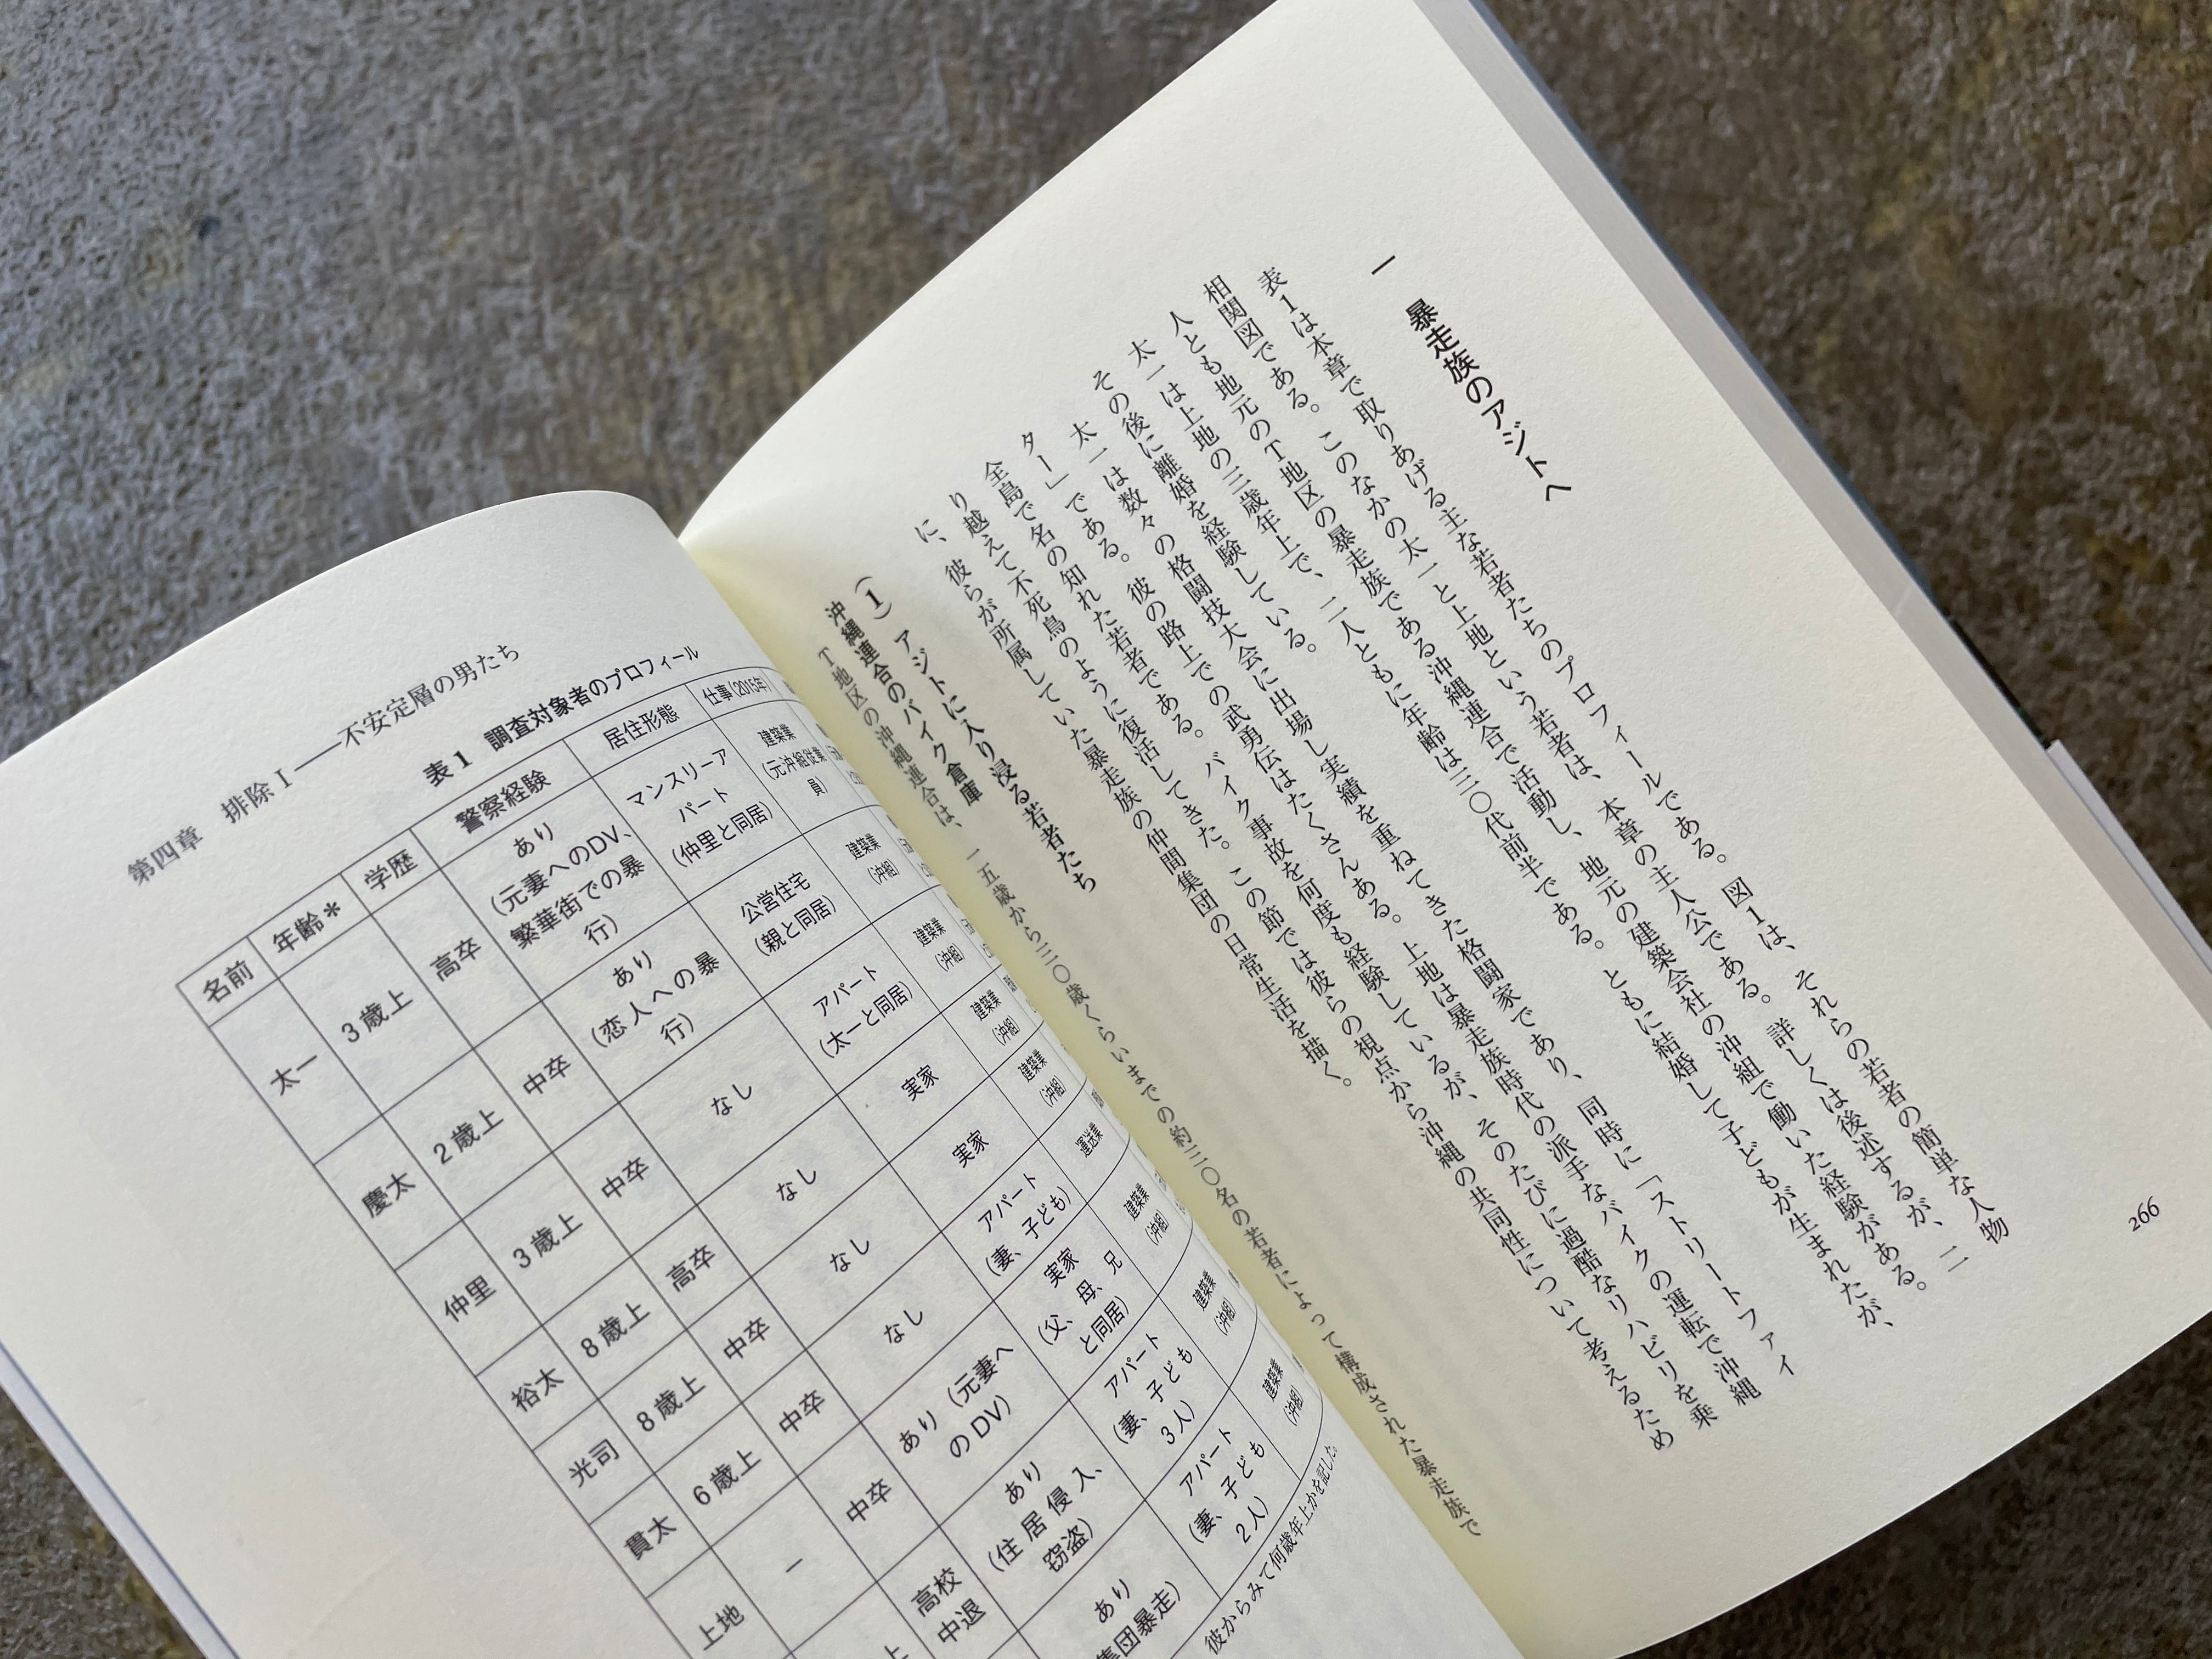 266
一　暴走族のアジトへ
表1は本章で取りあげる主な若者たちのプロフィールである。図1は、それらの若者の簡単な人物
相関図である。このなかの太一と上地という若者は、本章の主人公である。詳しくは後述するが、二
人とも地元のT地区の暴走族である沖縄連合で活動し、地元の建築会社の沖組で働いた経験がある。
太一は上地の三歳年上で、二人ともに年齢は三〇代前半である。ともに結婚して子どもが生まれたが、
その後に離婚を経験している。
太一は数々の格闘技大会に出場し実績を重ねてきた格闘家であり、同時に「ストリートファイ
ター」である。彼の路上での武勇伝はたくさんある。上地は暴走族時代の派手なバイクの運転で沖縄
全島で名の知れた若者である。バイク事故を何度も経験しているが、そのたびに過酷なリハビリを乗
り越えて不死鳥のように復活してきた。この節では彼らの視点から沖縄の共同性について考えるため
に、彼らが所属していた暴走族の仲間集団の日常生活を描く。
(1) アジトに入り浸る若者たち
沖縄連合のバイク倉庫
T地区の沖縄連合は、一五歳から三〇歳くらいまでの約三〇名の若者によって構成された暴走族で
第四章　排除Ⅰ――不安定層の男たち
表1　調査対象者のプロフィール
名前　年齢＊　学歴　警察経験　居住形態　仕事(2015年)
太一　3歳上　高卒　あり(元妻へのDV、繁華街での暴行)　マンスリーアパート(仲里と同居)　建築業(元沖組従業員)
慶太　2歳上　中卒　あり(恋人への暴行)　公営住宅(親と同居)　建築業(沖組)
仲里　3歳上　中卒　なし　アパート(太一と同居)　建築業(沖組)
裕太　8歳上　高卒　なし　実家　建築業(沖組)
光司　8歳上　中卒　なし　実家　建築業(沖組)
貫太　6歳上　中卒　なし　アパート(妻、子ども)　運送業
上地　－　中卒　あり(元妻へのDV)　実家(父、母、兄と同居)　建築業(沖組)
上　高校中退　あり(住居侵入、窃盗)　アパート(妻、子ども3人)　建築業(沖組)
あり　集団暴走)　アパート(妻、子ども2人)　建築業(沖組)
彼からみて何歳年上かを記した。